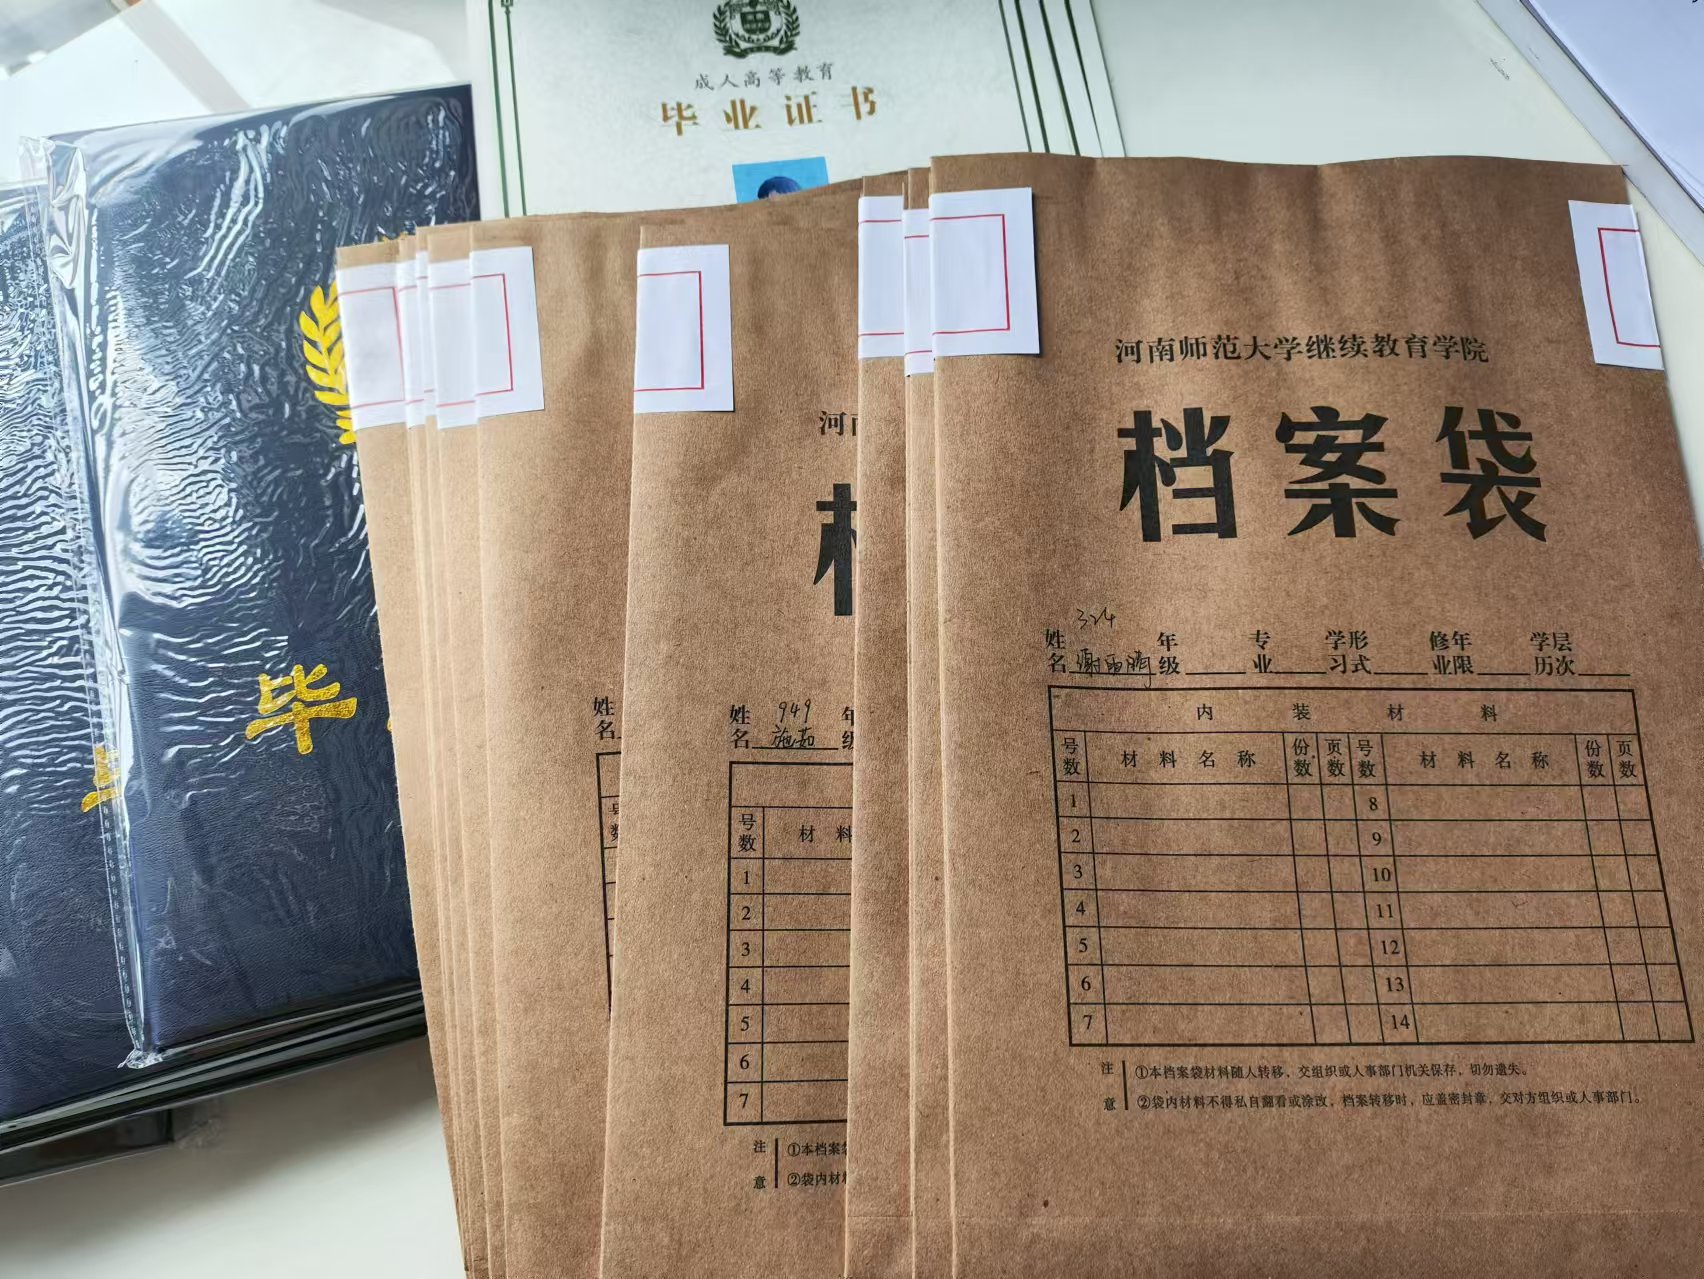 成人高等教育
毕业证书
毕
河南师范大学继续教育学院
档案袋
324
姓名 年级 专业 学习形式 修业年限 学历层次
内装材料
号数 材料名称 份数 页数 号数 材料名称 份数 页数
1 8
2 9
3 10
4 11
5 12
6 13
7 14
注意
①本档案袋材料随人转移，交组织或人事部门机关保存，切勿遗失。
②袋内材料不得私自翻看或涂改，档案转移时，应盖密封章，交对方组织或人事部门。
河南
949
姓名 施茹 年级
号数 材料
1
2
3
4
5
6
7
注意
①本档案
②袋内材
姓名
号数